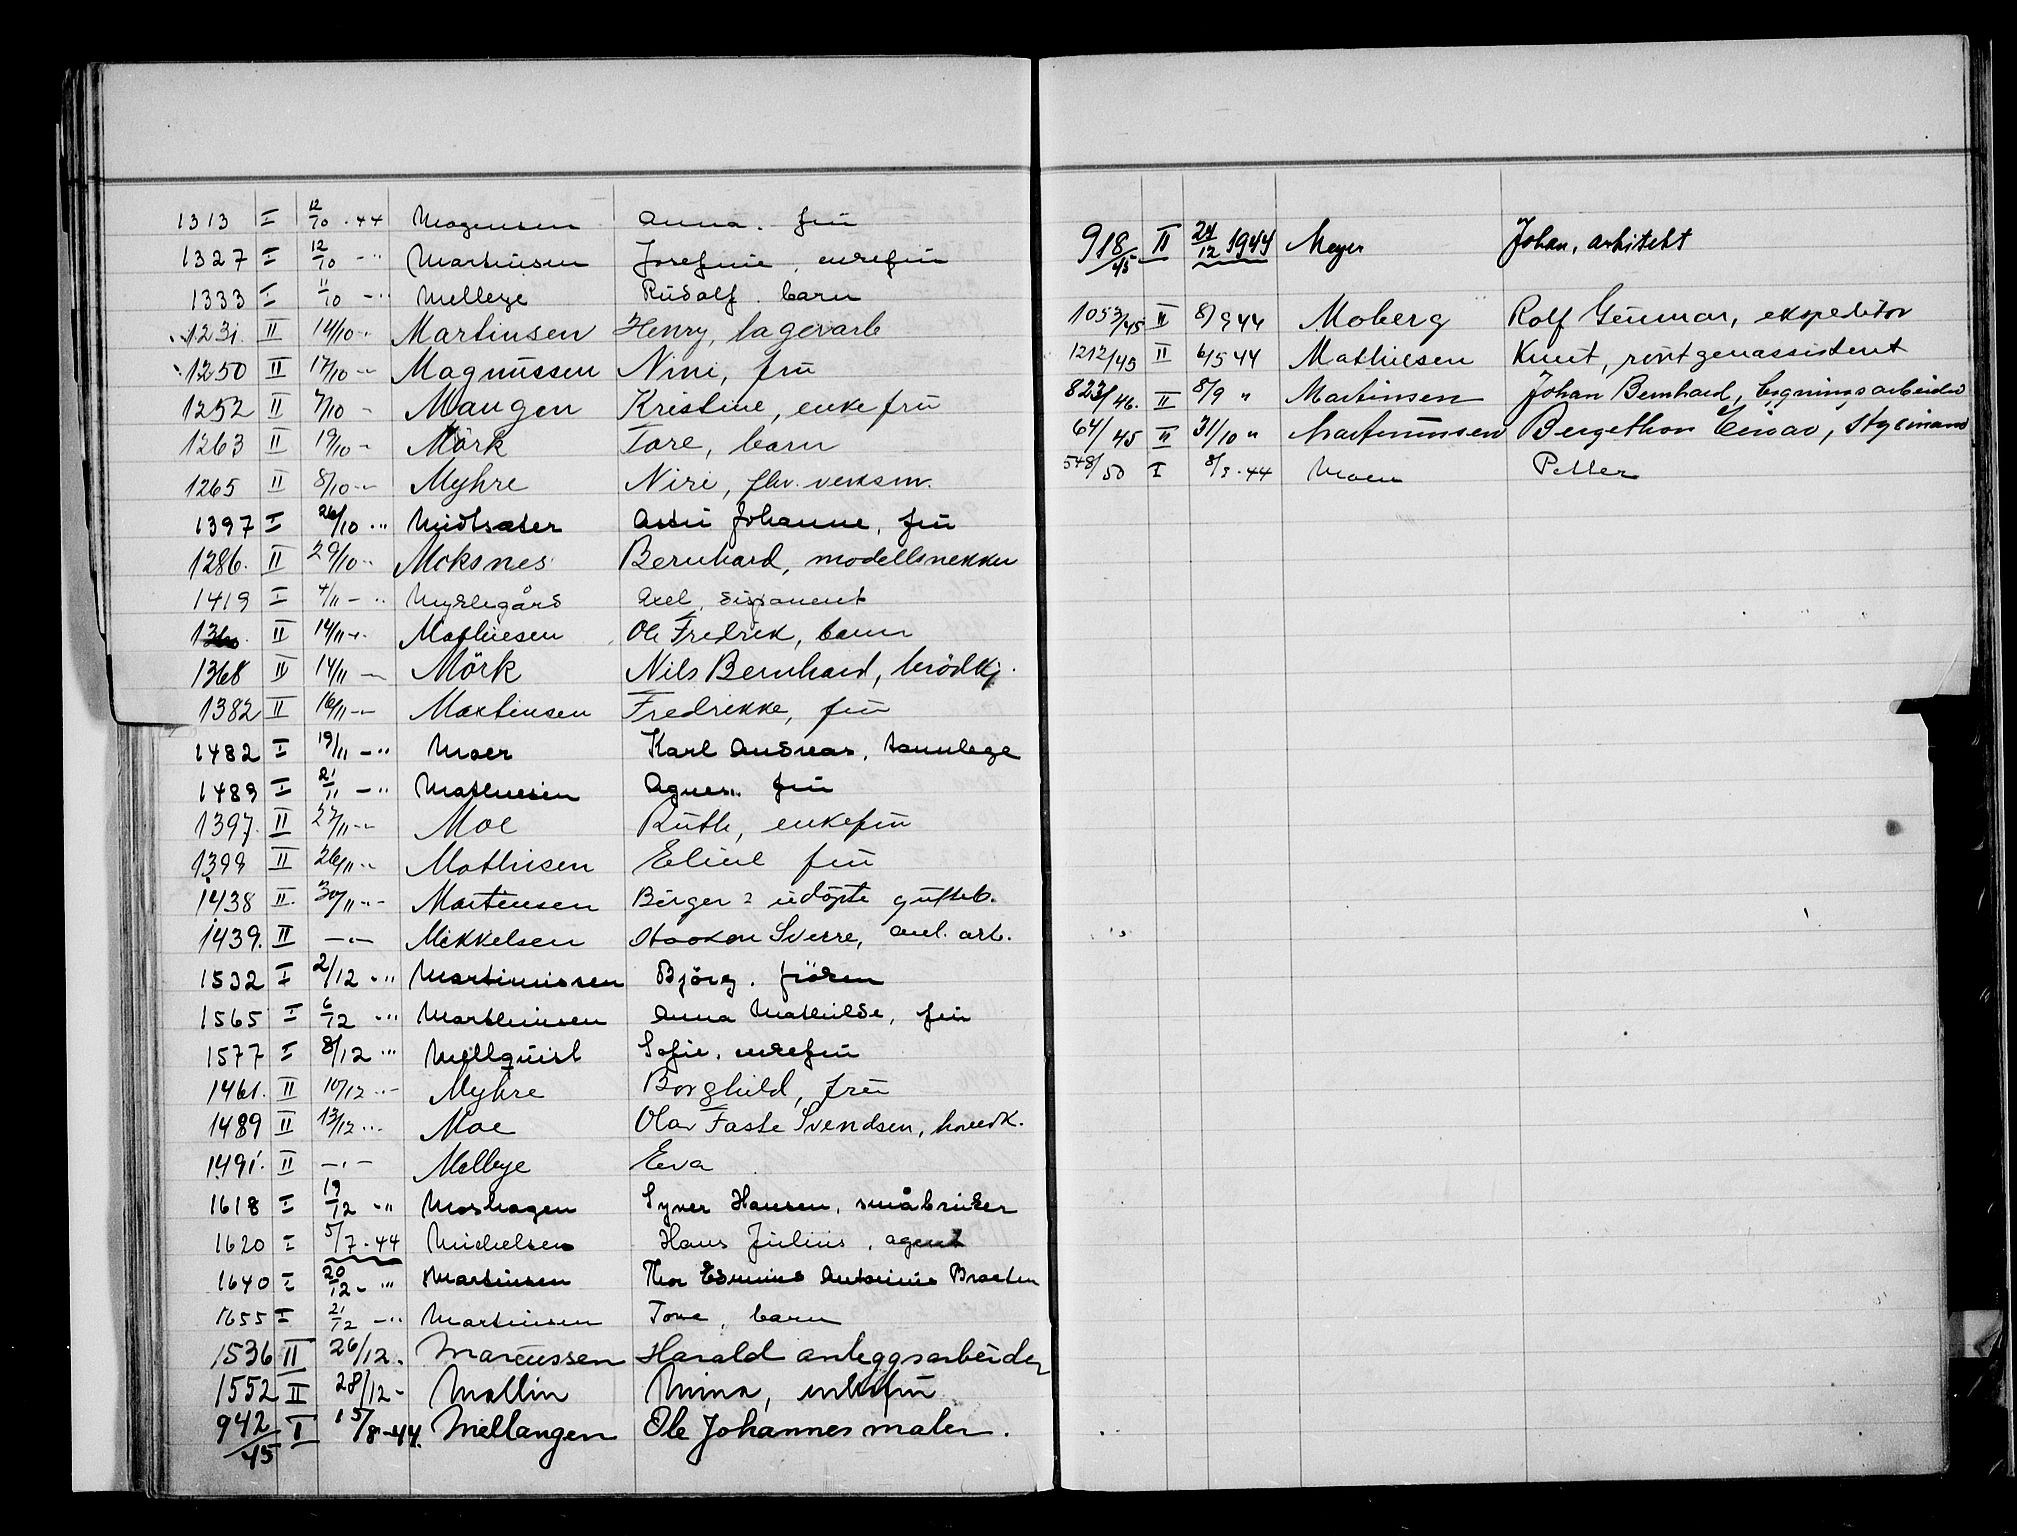 1313 I 12/10 . 44 Mogensen Anna. frü
1327 I 12/10 - " Martinsen Josefine, enkefrü
1333 I 11/10 - " Melleye Rüdolf. barn
1231. II 14/10 - Martinsen Henry, lagerarb
1250 II 17/10 - Magnüssen Nini, frü
1252 II 7/10 - Maugen Kristine, enkefrü
1263 II 19/10 - Mörk Tore, barn
1265 II 8/10 - Myhre Niri, fhv. verksm.
1397 I 26/10 . " Midtsæter Astri Johanne, frü
1286. II 29/10 - Moksnes Bernhard, modellsnekker
1419 I 4/11 - " Myrlegård Axel, disponent
II 14/11 - Mathiesen Ole Fredrik, barn
1368 II 14/11 - Mörk Nils Bernhard, brödkj.
1382 II 16/11 - Martinsen Fredrikke, frü
1482 I 19/11 - " Moer Karl Andreas, tannlege
1489 I 21/11 - " Mathiesen Agnes. frü
1397. II 27/11 - Moe Rüth, enkefrü
1399 II 26/11 - Mathisen Eline frü
1438 II. 30/11 - Martinsen Birger 2 üdöpte gütteb.
1439. II - " - Mikkelsen Haakon Sverre, anl. arb.
1532 I 2/12 . " Martiniussen Björg. fröken
1565 I 6/12 - " Marthinsen Anna Mathilde, frü
1577 I 8/12 " Mellquist Sofie, enkefrü
1461. II 10/12 - Myhre Borghild, frü
1489 II 13/12 - Moe Olav Faste Svendsen, hovedk.
1491. II - " - Melbye Eva
1618 I 19/12 - " Moshagen Syver Hansen, småbrüker
1620 I 5/7 - 44 Michelsen Hans Jülius, agent
1640 I 20/12 - " Martinsen Thor Edmund Antonius Braaten
1655 I 21/12 - " Martinsen Tove, barn
1536 II 26/12. Marcussen Harald anleggsarbeider
1552 II 28/12 - Mallin Mina, enkefrü
942/45 I 15/8 - 44. Mellangen Ole Johannes maler.
918/45 II 24/12 1944 Meyer Johan, arkitekt
1053/45 II 8/9 44 Moberg Rolf Günnar, ekspeditör
1212/45 II 6/5 44 Mathiesen Knut, röntgenassistent
823/46. II 8/9 " Martinsen Johan Bernhard, bygningsarbeider
64/45 II 31/10 " Martiniussen Bergethon Einar, styrmann
548/50 I 8/9 . 44 Moen Petter